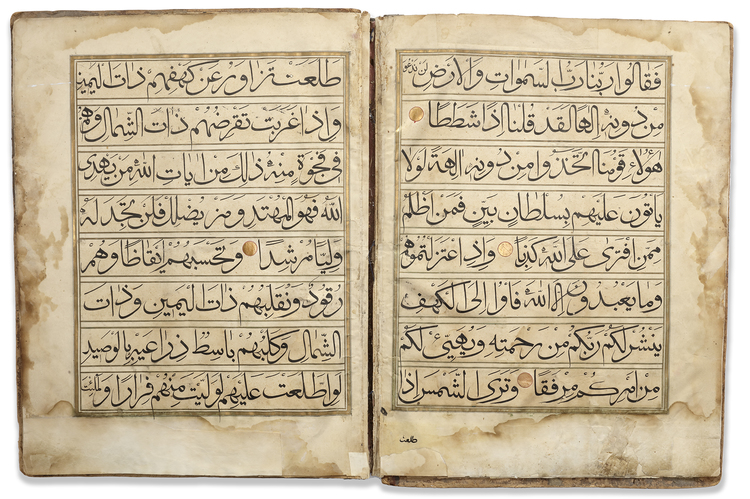 فقالوا ربنا رب السموات والارض لن ندعو
من دونه الها لقد قلنا اذا شططا
هؤلاء قومنا اتخذوا من دونه الهة لولا
ياتون عليهم بسلطان بين فمن اظلم
ممن افترى على الله كذبا واذ اعتزلتموهم
وما يعبدون الا الله فاوا الى الكهف
ينشر لكم ربكم من رحمته ويهيئ لكم
من امركم مرفقا وترى الشمس اذا
طلعت
طلعت تزاور عن كهفهم ذات اليمين
واذا غربت تقرضهم ذات الشمال وهم
في فجوة منه ذلك من ايات الله من يهدى
الله فهو المهتد ومن يضلل فلن تجد له
وليا مرشدا وتحسبهم ايقاظا وهم
رقود ونقلبهم ذات اليمين وذات
الشمال وكلبهم باسط ذراعيه بالوصيد
لو اطلعت عليهم لوليت منهم فرارا ولملئت